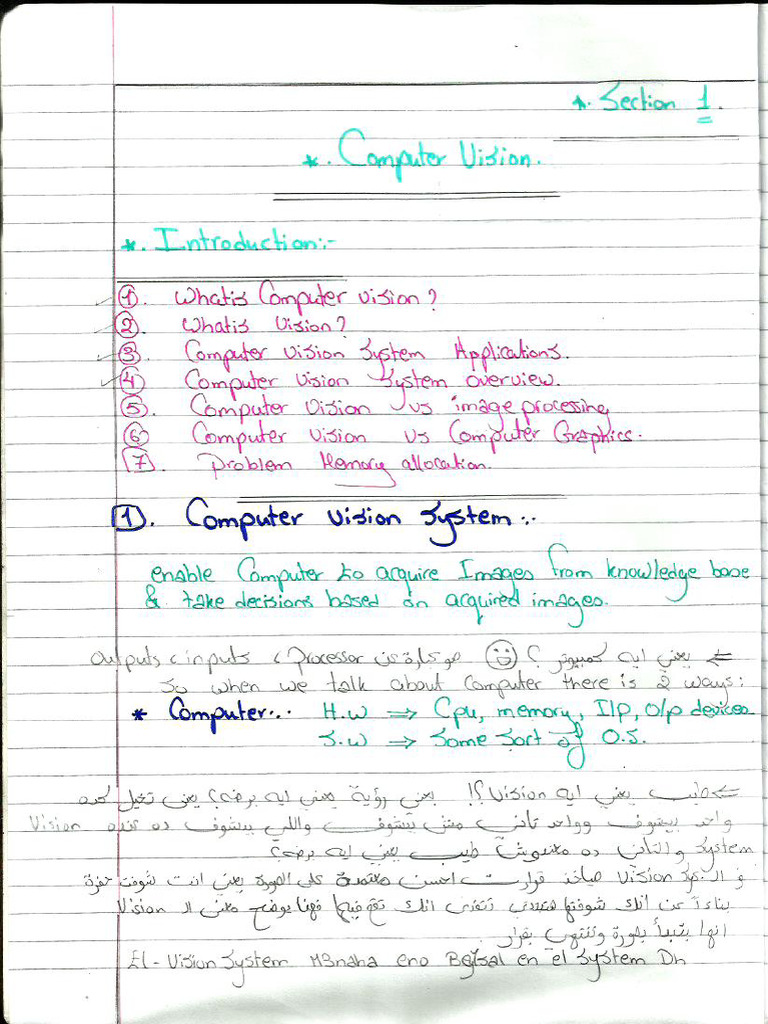 *. Section 1.
*. Computer Vision.
*. Introduction:-
1. What is Computer vision?
2. What is Vision?
3. Computer vision System Applications.
4. Computer vision System overview.
5. Computer Vision vs image processing
6. Computer vision vs Computer Graphics.
7. Problem Memory allocation.
1. Computer vision System:.
enable Computer to acquire Images from knowledge base
& take decisions based on acquired images.
⇐ يعني ايه كمبيوتر؟ هو عبارة عن Processor ، inputs ، outputs
So when we talk about Computer there is 2 ways:
* Computer:. H.W ⇒ Cpu, memory, I/p, O/p devices
S.W ⇒ Some Sort of O.S.
⇐ طيب يعني ايه Vision؟! يعني رؤية يعني ايه برضه؟ يعني تخيل كده
واحد بيشوف وواحد تاني مش بيشوف واللي بيشوف ده عنده Vision
System والتاني ده معندوش طيب يعني ايه برضه؟
في الـ Vision Sys هياخد قرارات احسن معتمدة على الصورة يعني انت شوفت حفرة
بناءاً عن انك شوفتها تتفادى انك تقع فيها فهنا يوضح معنى الـ Vision
انها بتبدأ بصورة وتنتهي بقرار
El-Vision System M3naha eno Begsal en el System Dh